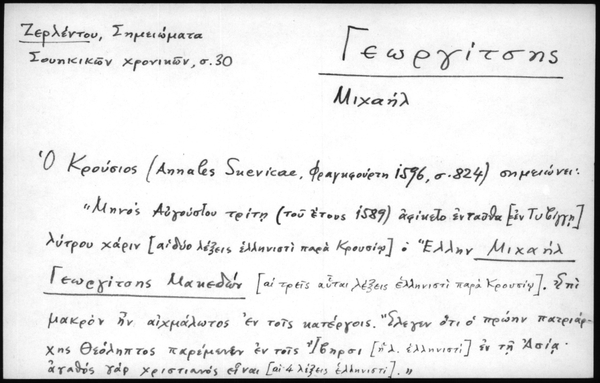 Ζερλέντου, Σημειώματα
Σουηκικῶν χρονικῶν, σ. 30
Γεωργίτσης
Μιχαήλ
Ὁ Κρούσιος (Annales Suevicae, Φραγκφούρτη 1596, σ. 824) σημειώνει:
"Μηνὸς Αὐγούστου τρίτῃ (τοῦ ἔτους 1589) ἀφίκετο ἐνταῦθα [ἐν Τυβίγγῃ]
λύτρου χάριν [αἱ δύο λέξεις ἑλληνιστὶ παρὰ Κρουσίῳ] ὁ Ἕλλην Μιχαὴλ
Γεωργίτσης Μακεδὼν [αἱ τρεῖς αὗται λέξεις ἑλληνιστὶ παρὰ Κρουσίῳ]. Ἐπὶ
μακρὸν ἦν αἰχμάλωτος ἐν τοῖς κατέργοις. Ἔλεγεν ὅτι ὁ πρώην πατριάρ-
χης Θεόληπτος παρέμενεν ἐν τοῖς Ἴβηρσι [ἡ λ. ἑλληνιστὶ] ἐν τῇ Ἀσίᾳ·
ἀγαθὸς γὰρ χριστιανὸς εἶναι [αἱ 4 λέξεις ἑλληνιστὶ]."